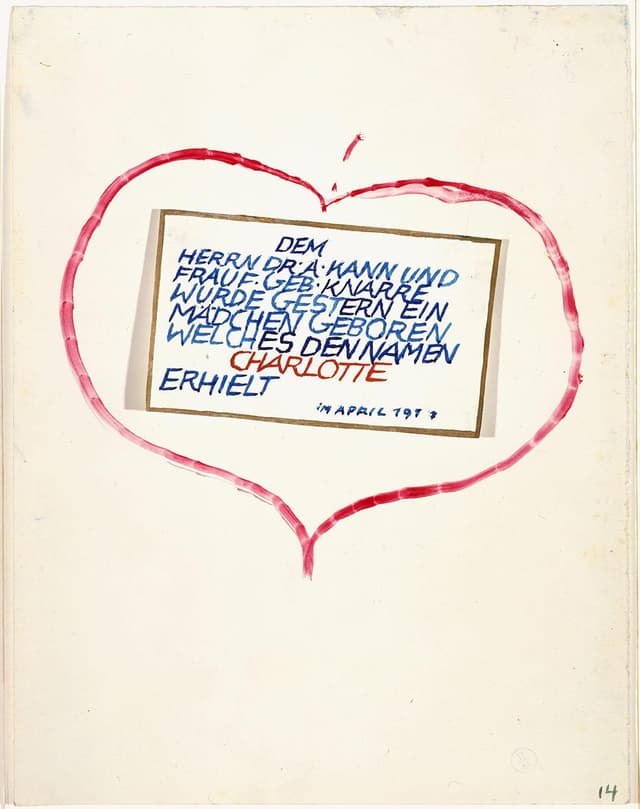 DEM
HERRN DR·A·KANN UND
FRAU F·GEB·KNARRE
WURDE GESTERN EIN
MÄDCHEN GEBOREN
WELCHES DEN NAMEN
CHARLOTTE
ERHIELT
IM APRIL 1917
14